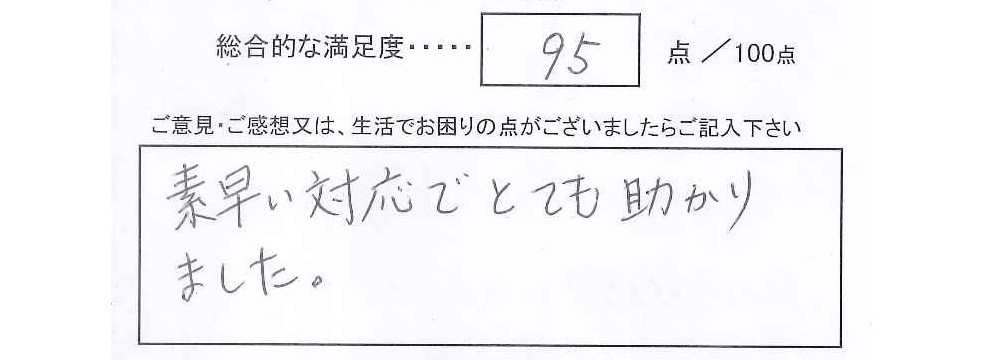 総合的な満足度・・・・・ 95 点 ／100点
ご意見・ご感想又は、生活でお困りの点がございましたらご記入下さい
素早い対応でとても助かり
ました。